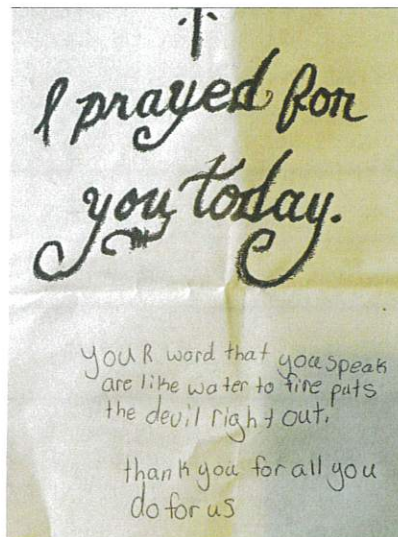 I prayed for
you today.
youR word that you speak
are like water to fire puts
the devil right out.
thank you for all you
do for us